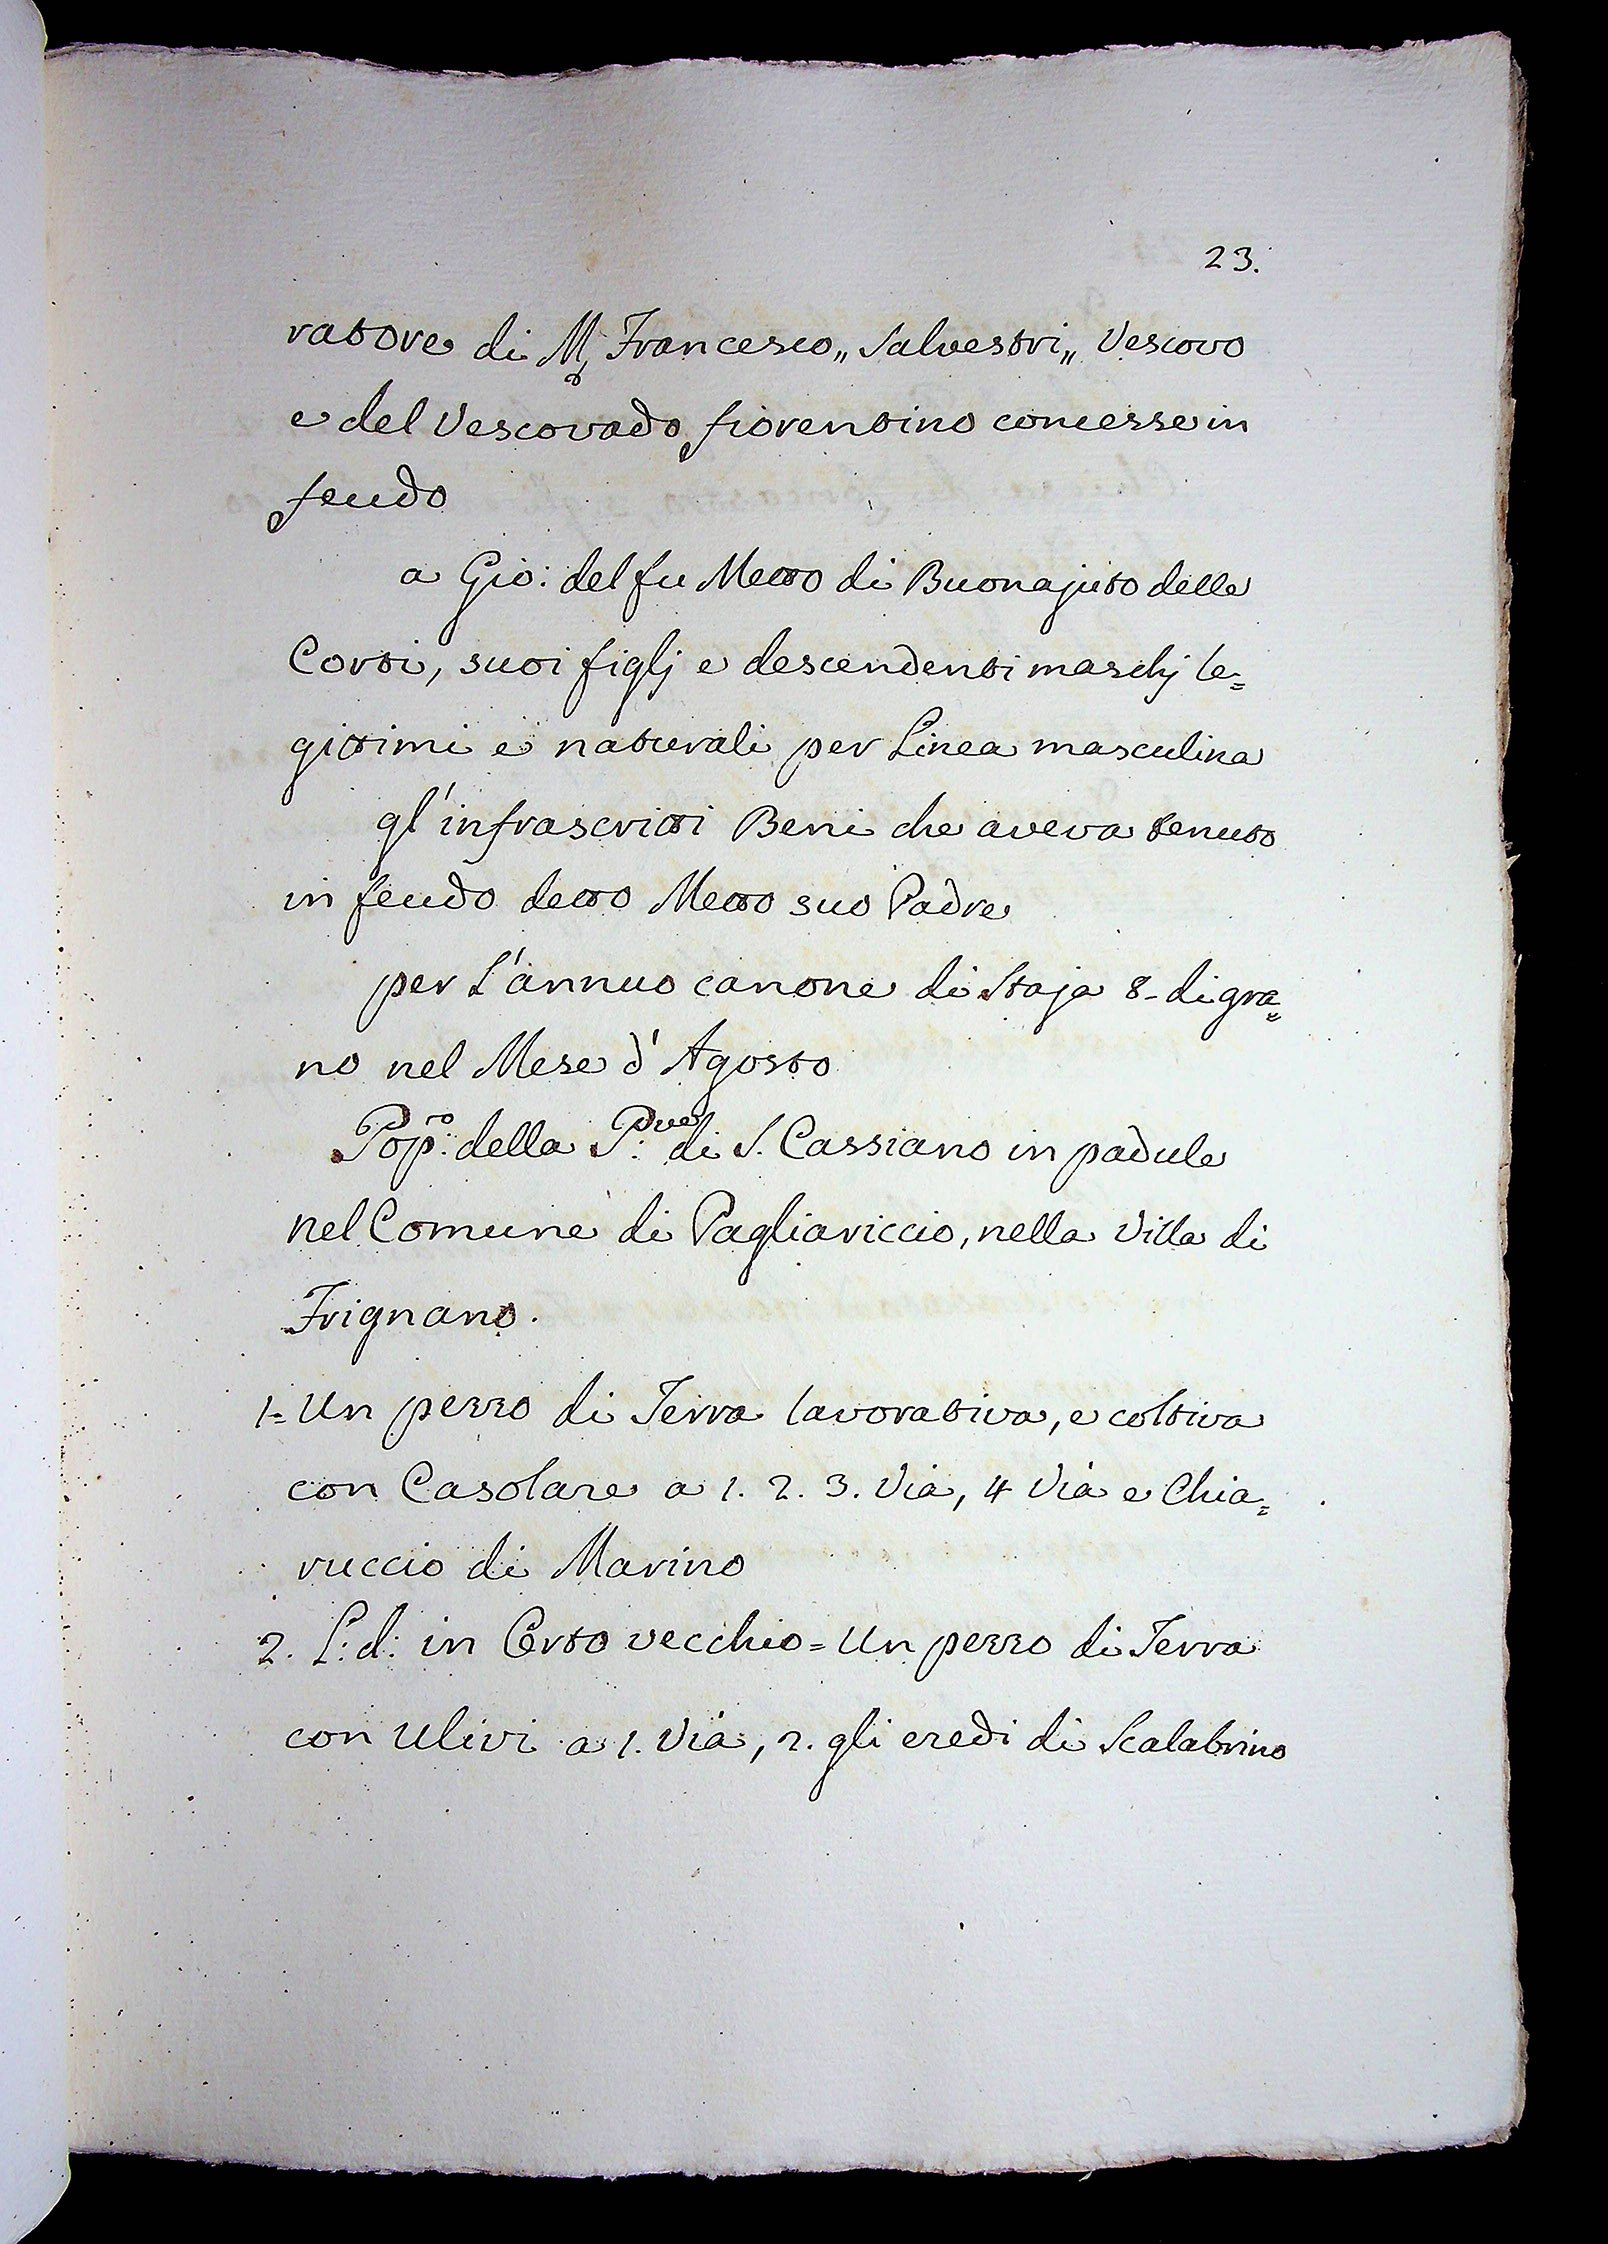 23.
ratore di M. Francesco „ Salvestri „ Vescovo
e del Vescovado fiorentino concesse in
feudo
a Gio: del fu Metto di Buonajuto delle
Corti, suoi figlj e descendenti maschj le=
gittimi e naturali per Linea masculina
gl'infrascritti Beni che aveva tenuto
in feudo detto Metto suo Padre
per L'annuo canone di Staja 8- di gra=
no nel Mese d'Agosto
Pop:º della P:ve di S. Cassiano in padule
nel Comune di Pagliariccio, nella Villa di
Frignano.
1= Un pezzo di Terra lavorativa, e coltiva
con Casolare a 1. 2. 3. Via, 4 Via e Chia=
ruccio di Marino
2. L: d: in Orto vecchio = Un pezzo di Terra
con Ulivi a 1. Via, 2. gli eredi di Scalabrino